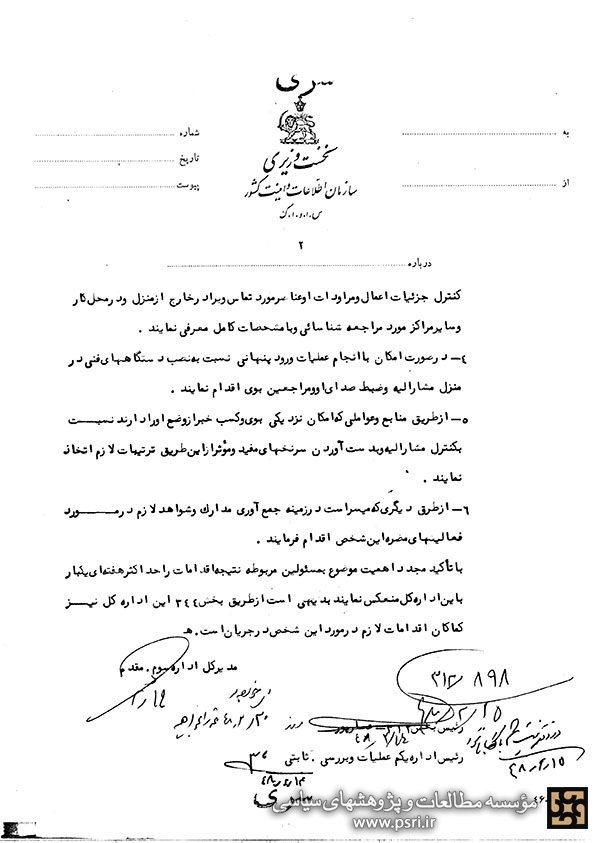 سری
نخست وزیری
سازمان اطلاعات و امنیت کشور
س.ا.و.ا.ک
به
از
شماره
تاریخ
پیوست
۲
درباره
کنترل جزئیات اعمال ومراودات اوعناصرمورد تماس ویراد رخارج ازمنزل ود رمحل کار
وسایرمراکز مورد مراجعه شناسائی وبا مشخصات کامل معرفی نمایند .
٤- د رصورت امکان با انجام عملیات ورود پنهانی نسبت به نصب د ستگاههای فنی د ر
منزل مشارالیه وضبط صدای اوومراجعین بوی اقدام نمایند .
٥- ازطریق منابع وعواملی که امکان نزد یکی بوی وکسب خبرازوضع اورا د ارند نسبت
بکنترل مشارالیه وبد ست آورد ن سرنخهای مفید وموثرازاین طریق ترتیبات لا زم اتخاذ
نمایند .
٦- ازطرق د یگری که میسراست د رزمینه جمع آوری مدارك وشواهد لا زم د رمورد
فعالیتهای مضره این شخص اقدام فرمایند .
با تأکید مجدد اهمیت موضوع بمسئولین مربوطه نتیجه اقدامات را حد اکثرهفته ای یکبار
با ین اد اره کل منعکس نمایند بد یهی است ازطریق بخش ٣٤٤ این اد اره کل نیز
کماکان اقدامات لا زم د رمورد این شخص د رجریان است. هـ
مد یرکل اد اره سوم . مقدم
۳۱۲/۸۹۸
۴۸/۲/۱۵
رئیس بخش ۳۱۲
رئیس اد اره یکم عملیات وبررسی . ثابتی
سری
مؤسسه مطالعات و پژوهشهای سیاسی
www.psri.ir